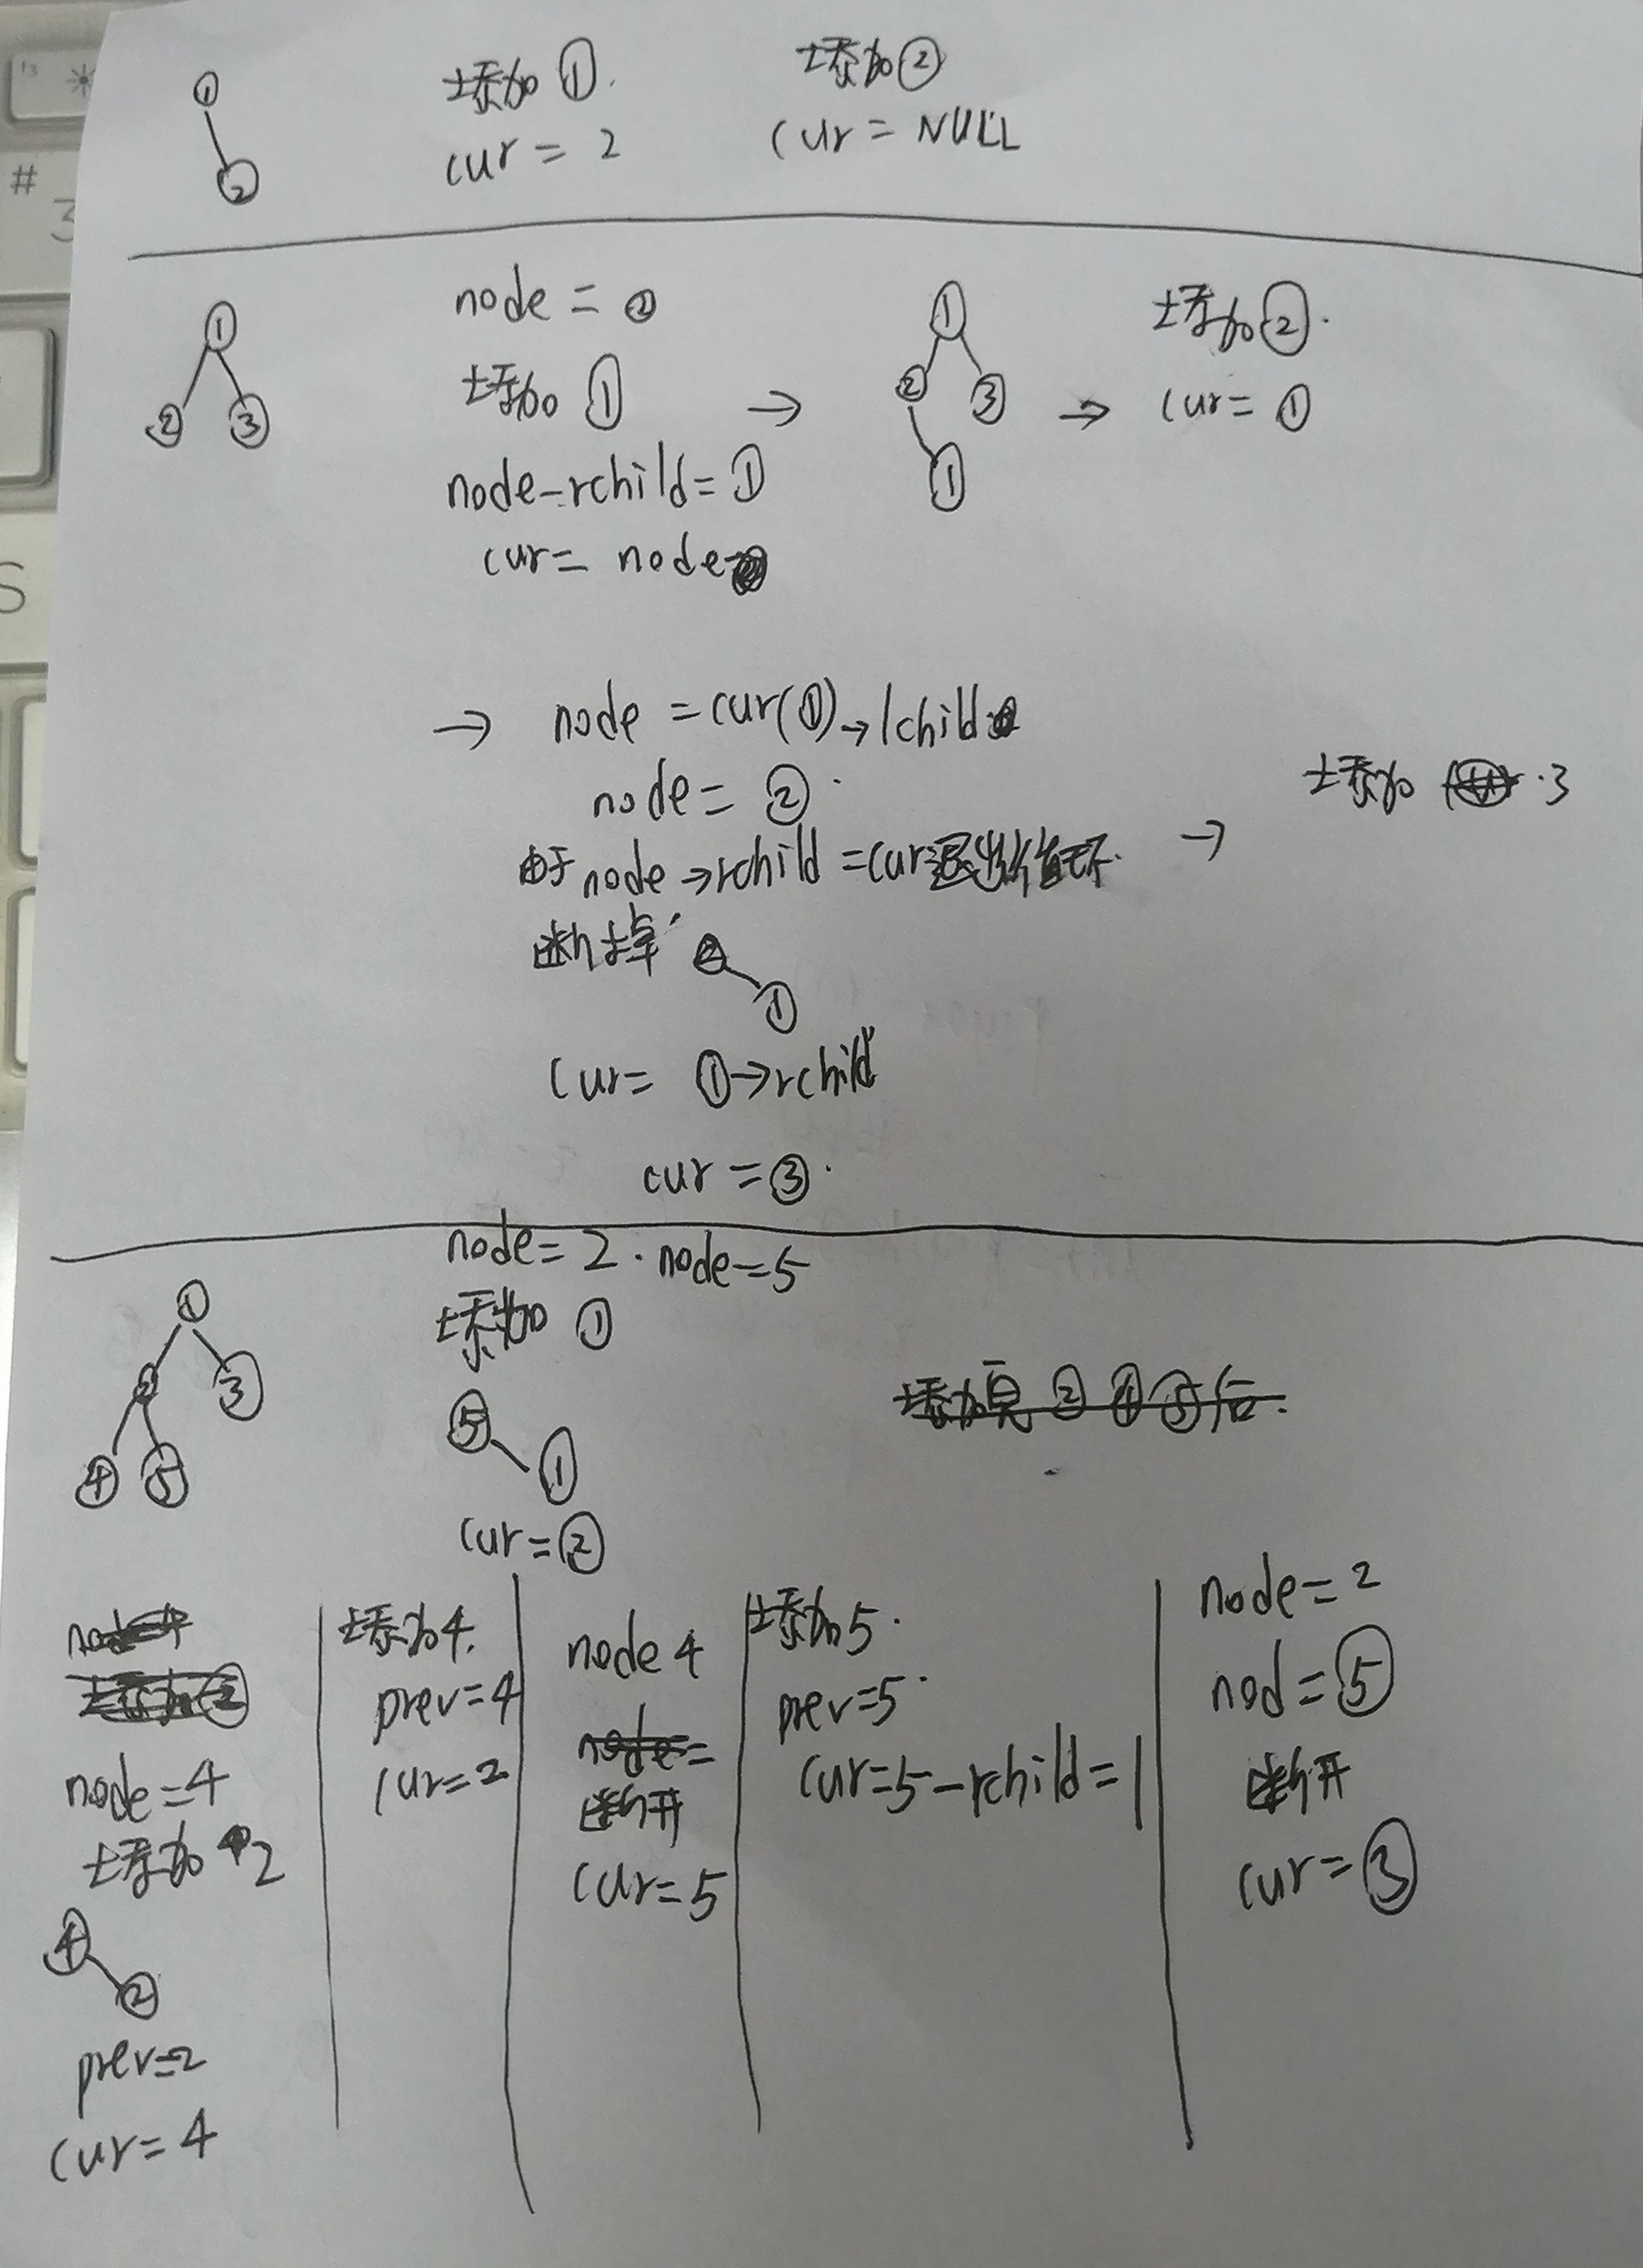 ①
②
添加①.
cur = 2
添加②
cur = NULL
①
② ③
node = ②
添加 ①
node-rchild = ①
cur = node
→
①
② ③
①
→
添加②.
cur = ①
→ node = cur(①)→lchild
node = ②.
由于node→rchild = cur退出循环.
断掉
② ①
cur = ①→rchild
cur = ③.
→
添加 3
①
② ③
④ ⑤
node = 2. node = 5
添加 ①
⑤
①
cur = ②
添加完 ② ④ ⑤ 后.
node=4
添加 2
④
②
prev=2
cur=4
添加4.
prev=4
cur=2
node 4
node=
断开
cur=5
添加5.
prev=5.
cur=5-rchild=1
node=2
nod=⑤
断开
cur=③
#
3
S